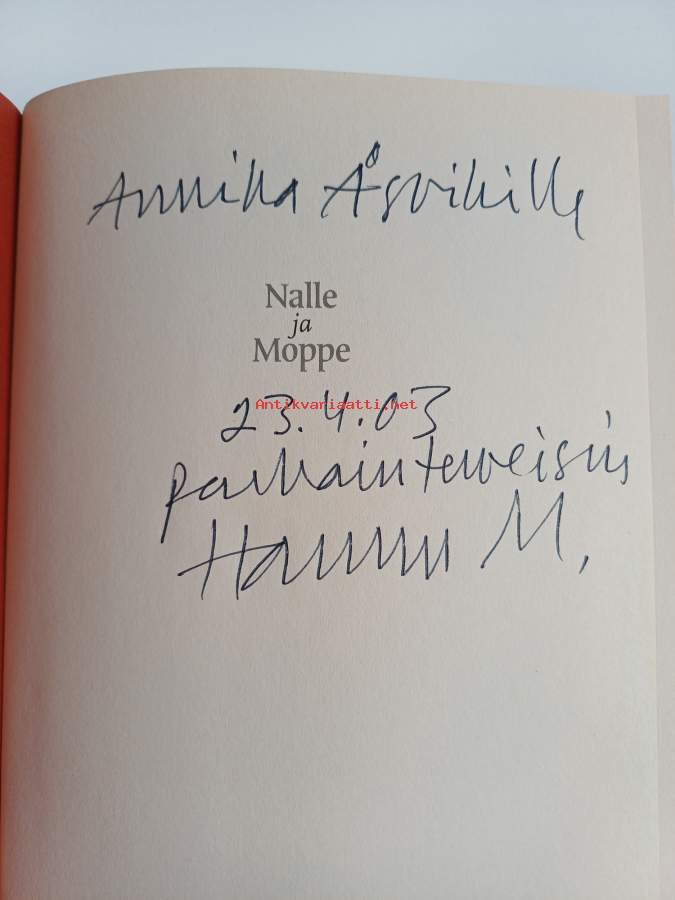 Annika Åsvikille
Nalle
ja
Moppe
Antikvariaatti.net
23.4.03
parhain terveisin
Hannu M.